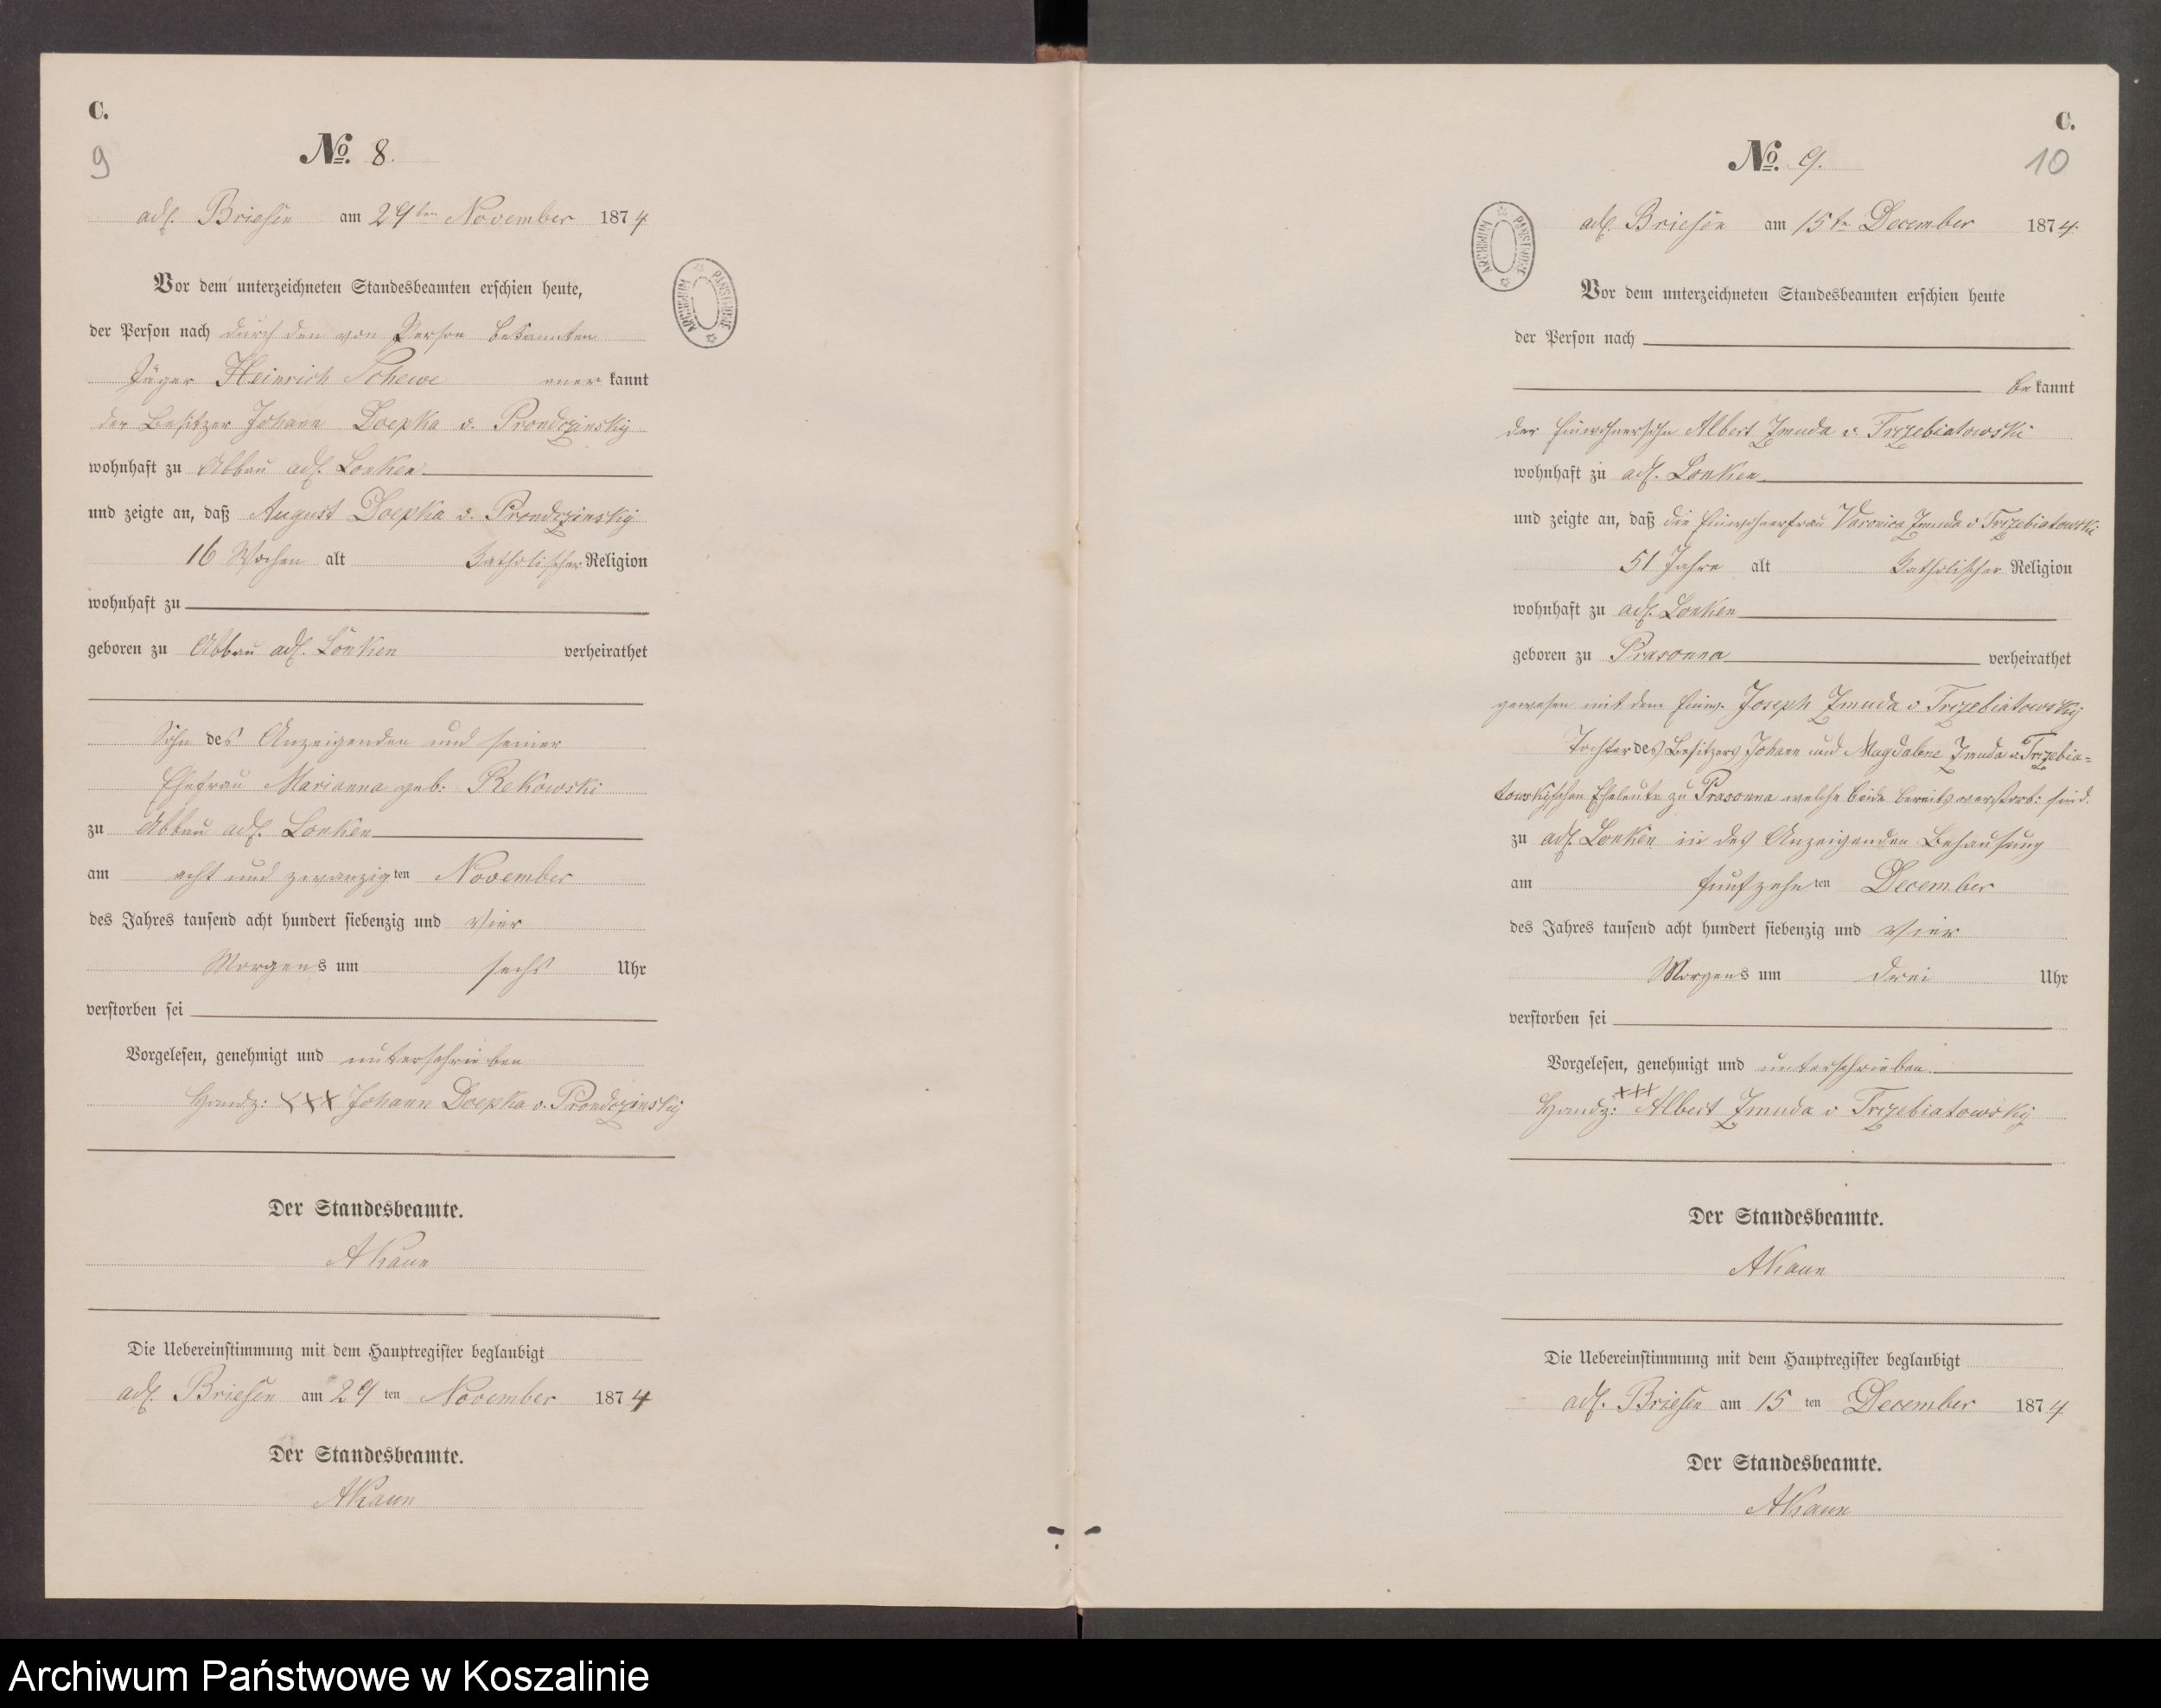 C.
9
No. 8.
adl. Briesen am 29ten November 1874.
ARCHIWUM PAŃSTWOWE
Vor dem unterzeichneten Standesbeamten erschien heute,
der Person nach durch den von Person bekannten
Jäger Heinrich Schewe aner kannt
der Besitzer Johann Doepka v. Prondzinsky
wohnhaft zu Abbau adl. Lonken
und zeigte an, daß August Doepka v. Prondzinsky
16 Wochen alt katholischer Religion
wohnhaft zu
geboren zu Abbau adl. Lonken verheirathet
Sohn des Anzeigenden und seiner
Ehefrau Marianna geb: Rekowski
zu Abbau adl. Lonken
am acht und zwanzig ten November
des Jahres tausend acht hundert siebenzig und vier
Morgens um sechs Uhr
verstorben sei
Vorgelesen, genehmigt und unterschrieben
Handz: XXX Johann Doepka v. Prondzinsky
Der Standesbeamte.
AKaun
Die Uebereinstimmung mit dem Hauptregister beglaubigt
adl. Briesen am 29 ten November 1874
Der Standesbeamte.
AKaun
C.
10
No. 9.
adl. Briesen am 15te December 1874.
ARCHIWUM PAŃSTWOWE
Vor dem unterzeichneten Standesbeamten erschien heute
der Person nach
be kannt
der Einwohnersohn Albert Zmuda v. Trzebiatowski
wohnhaft zu adl. Lonken
und zeigte an, daß die Einwohnerfrau Varonica Zmuda v Trzebiatowski
51 Jahre alt katholischer Religion
wohnhaft zu adl. Lonken
geboren zu Prasonna verheirathet
gewesen mit dem Einw. Joseph Zmuda v Trzebiatowsky
Tochter des Besitzers Johann und Magdalene Zmuda v. Trzebia=
towskischen Eheleute zu Prasonna welche beide bereits verstorb: sind.
zu adl. Lonken in des Anzeigenden Behausung
am funfzehn ten December
des Jahres tausend acht hundert siebenzig und vier
Morgens um drei Uhr
verstorben sei
Vorgelesen, genehmigt und unterschrieben.
Handz: +++ Albert Zmuda v Trzebiatowsky
Der Standesbeamte.
AKaun
Die Uebereinstimmung mit dem Hauptregister beglaubigt
adl. Briesen am 15 ten December 1874
Der Standesbeamte.
AKaun
Archiwum Państwowe w Koszalinie